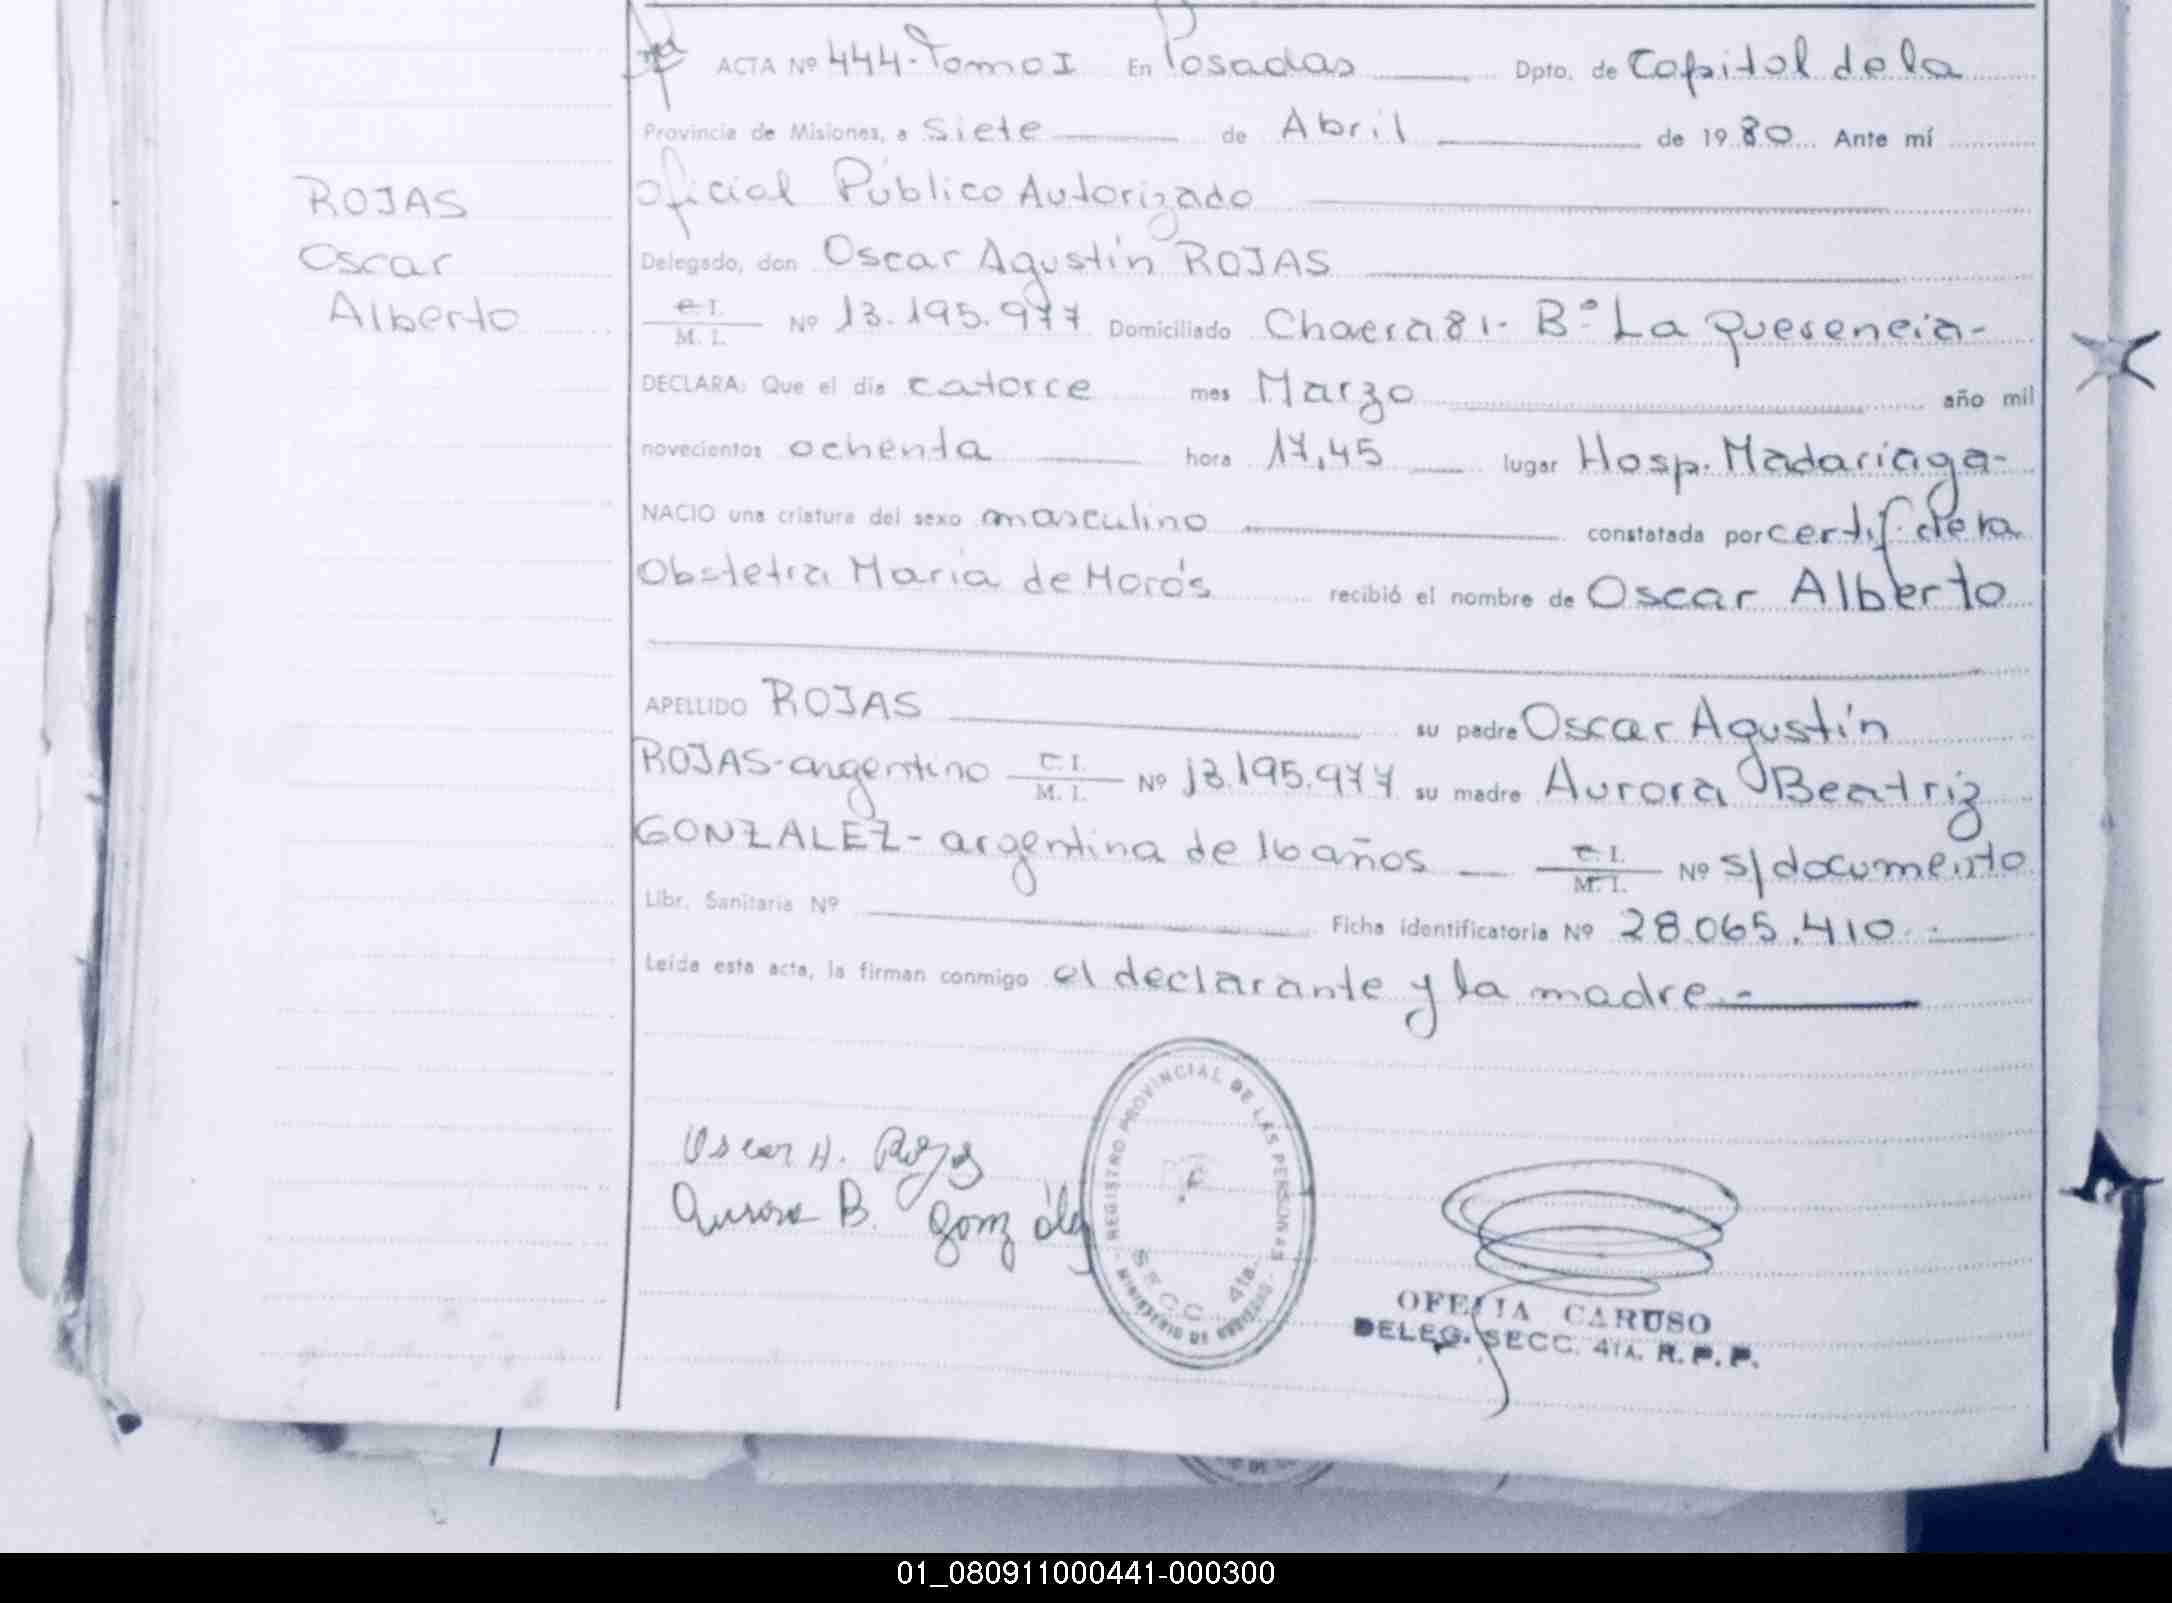 ACTA Nº 444-Tomo I En Posadas Dpto. de Capital de la
Provincia de Misiones, a siete de Abril de 1980 Ante mí
oficial Público Autorizado
Delegado, don Oscar Agustín ROJAS
C.I. M. I. Nº 13.195.977 Domiciliado Chacra 81- Bº La Querencia-
DECLARA: Que el día catorce mes Marzo año mil
novecientos ochenta hora 17,45 lugar Hosp. Madariaga-
NACIO una criatura del sexo masculino constatada por certif. de la
Obstetra María de Morós recibió el nombre de Oscar Alberto
APELLIDO ROJAS su padre Oscar Agustín
ROJAS-argentino C.I. M. I. Nº 13.195.977 su madre Aurora Beatriz
GONZALEZ- argentina de 16 años C.I. M. I. Nº s/documento
Libr. Sanitaria Nº Ficha identificatoria Nº 28.065.410.-
Leída esta acta, la firman conmigo el declarante y la madre.-
ROJAS
Oscar
Alberto
Oscar A. Rojas
Aurora B. González
REGISTRO PROVINCIAL DE LAS PERSONAS
SECC. 4ta.
MINISTERIO DE GOBIERNO
OFELIA CARUSO
DELEG. SECC. 4TA. R. P. P.
01_080911000441-000300